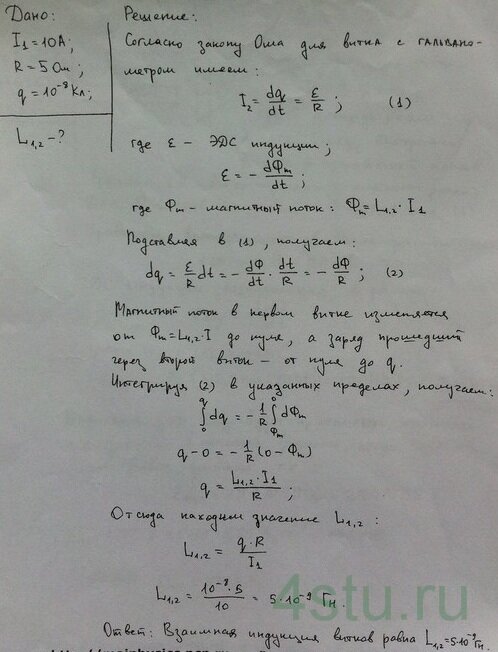 Дано:
I₁ = 10 А;
R = 5 Ом;
q = 10⁻⁸ Кл;
L₁,₂ - ?
Решение:
Согласно закону Ома для витка с гальвано-
метром имеем:
I₂ = dq/dt = ε/R ; (1)
где ε - ЭДС индукции;
ε = - dΦₘ/dt ;
где Φₘ - магнитный поток: Φₘ = L₁,₂ · I₁
Подставляя в (1), получаем:
dq = ε/R dt = - dΦ/dt · dt/R = - dΦ/R ; (2)
Магнитный поток в первом витке изменяется
от Φₘ = L₁,₂ · I до нуля, а заряд прошедший
через второй виток - от нуля до q.
Интегрируя (2) в указанных пределах, получаем:
∫₀^q dq = - 1/R ∫_Φₘ^0 dΦₘ
q - 0 = - 1/R (0 - Φₘ)
q = L₁,₂ · I₁ / R ;
Отсюда находим значение L₁,₂ :
L₁,₂ = q · R / I₁
L₁,₂ = 10⁻⁸ · 5 / 10 = 5 · 10⁻⁹ Гн.
4stu.ru
Ответ: Взаимная индукция витков равна L₁,₂ = 5·10⁻⁹ Гн.